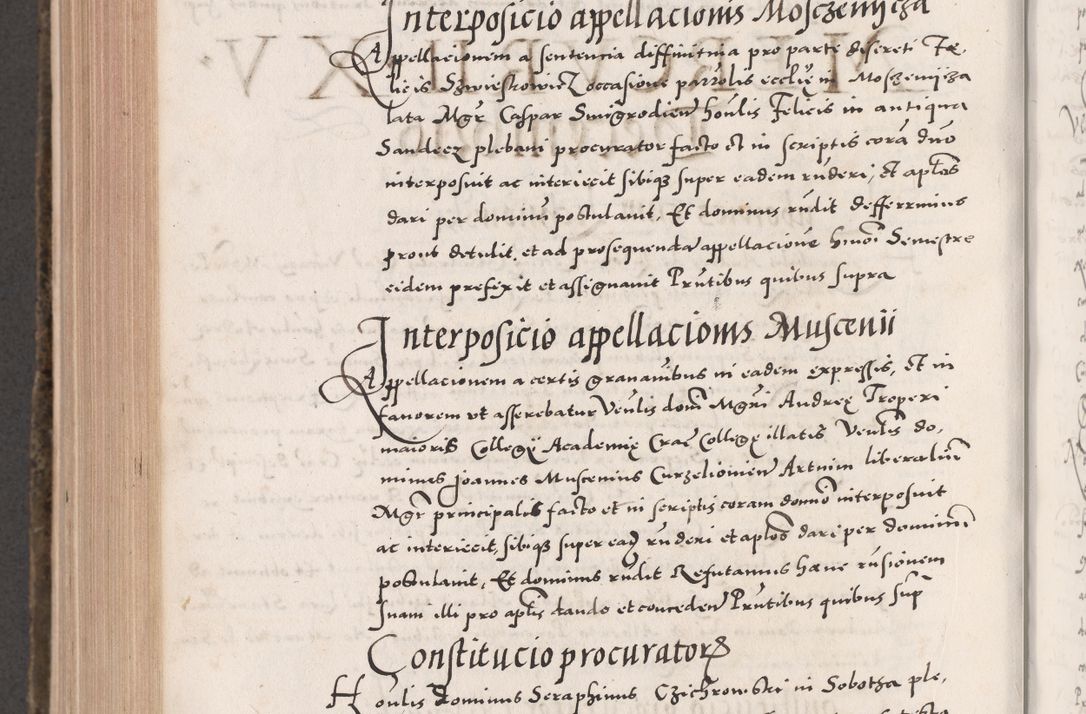 Interposicio appellacionis Mosczenycza
Appellacionem a sentencia diffinitiva pro parte discreti Fe-
licis Dzwieskowicz occasione parrolis ecclię in Moszczenijcza
lata Mgr Caspar Smigrodien honlis Felicis in antiqua
Sandecz plebani procurator facto et in scriptis corā duō
interposuit ac interiecit sibiq super eadem rūderi, et aplōs
dari per dominū postulavit, Et dominus rūdit defferrimus
prout detulit, et ad prosequendā appellacionē hmōi Semestre
eidem prefixit et assignavit Prntibus quibus supra
Interposicio appellacionis Muscenii
Appellacionem a certis gravaminibus in eadem expressis, et in
favorem ut asserebatur Venlis domi Mgri Andreę Troperi
maioris Collegij Academię Crac Collegę illatis Venlis do-
minus Joannes Muscenius Curzelovien Artium liberaliū
Mgr principalis facto et in scriptis coram domno interposuit
ac interiecit, sibiq super eaq rūderi et aplōs dari per dominū
postulavit, Et dominus rūdit Refutamus hanc rūsionem
suam illi pro aplis dando et conceden Prntibus quibus sup
Constitucio procuratorꝝ
Honlis dominus Seraphinus Czichrowski in Sobotka ple-